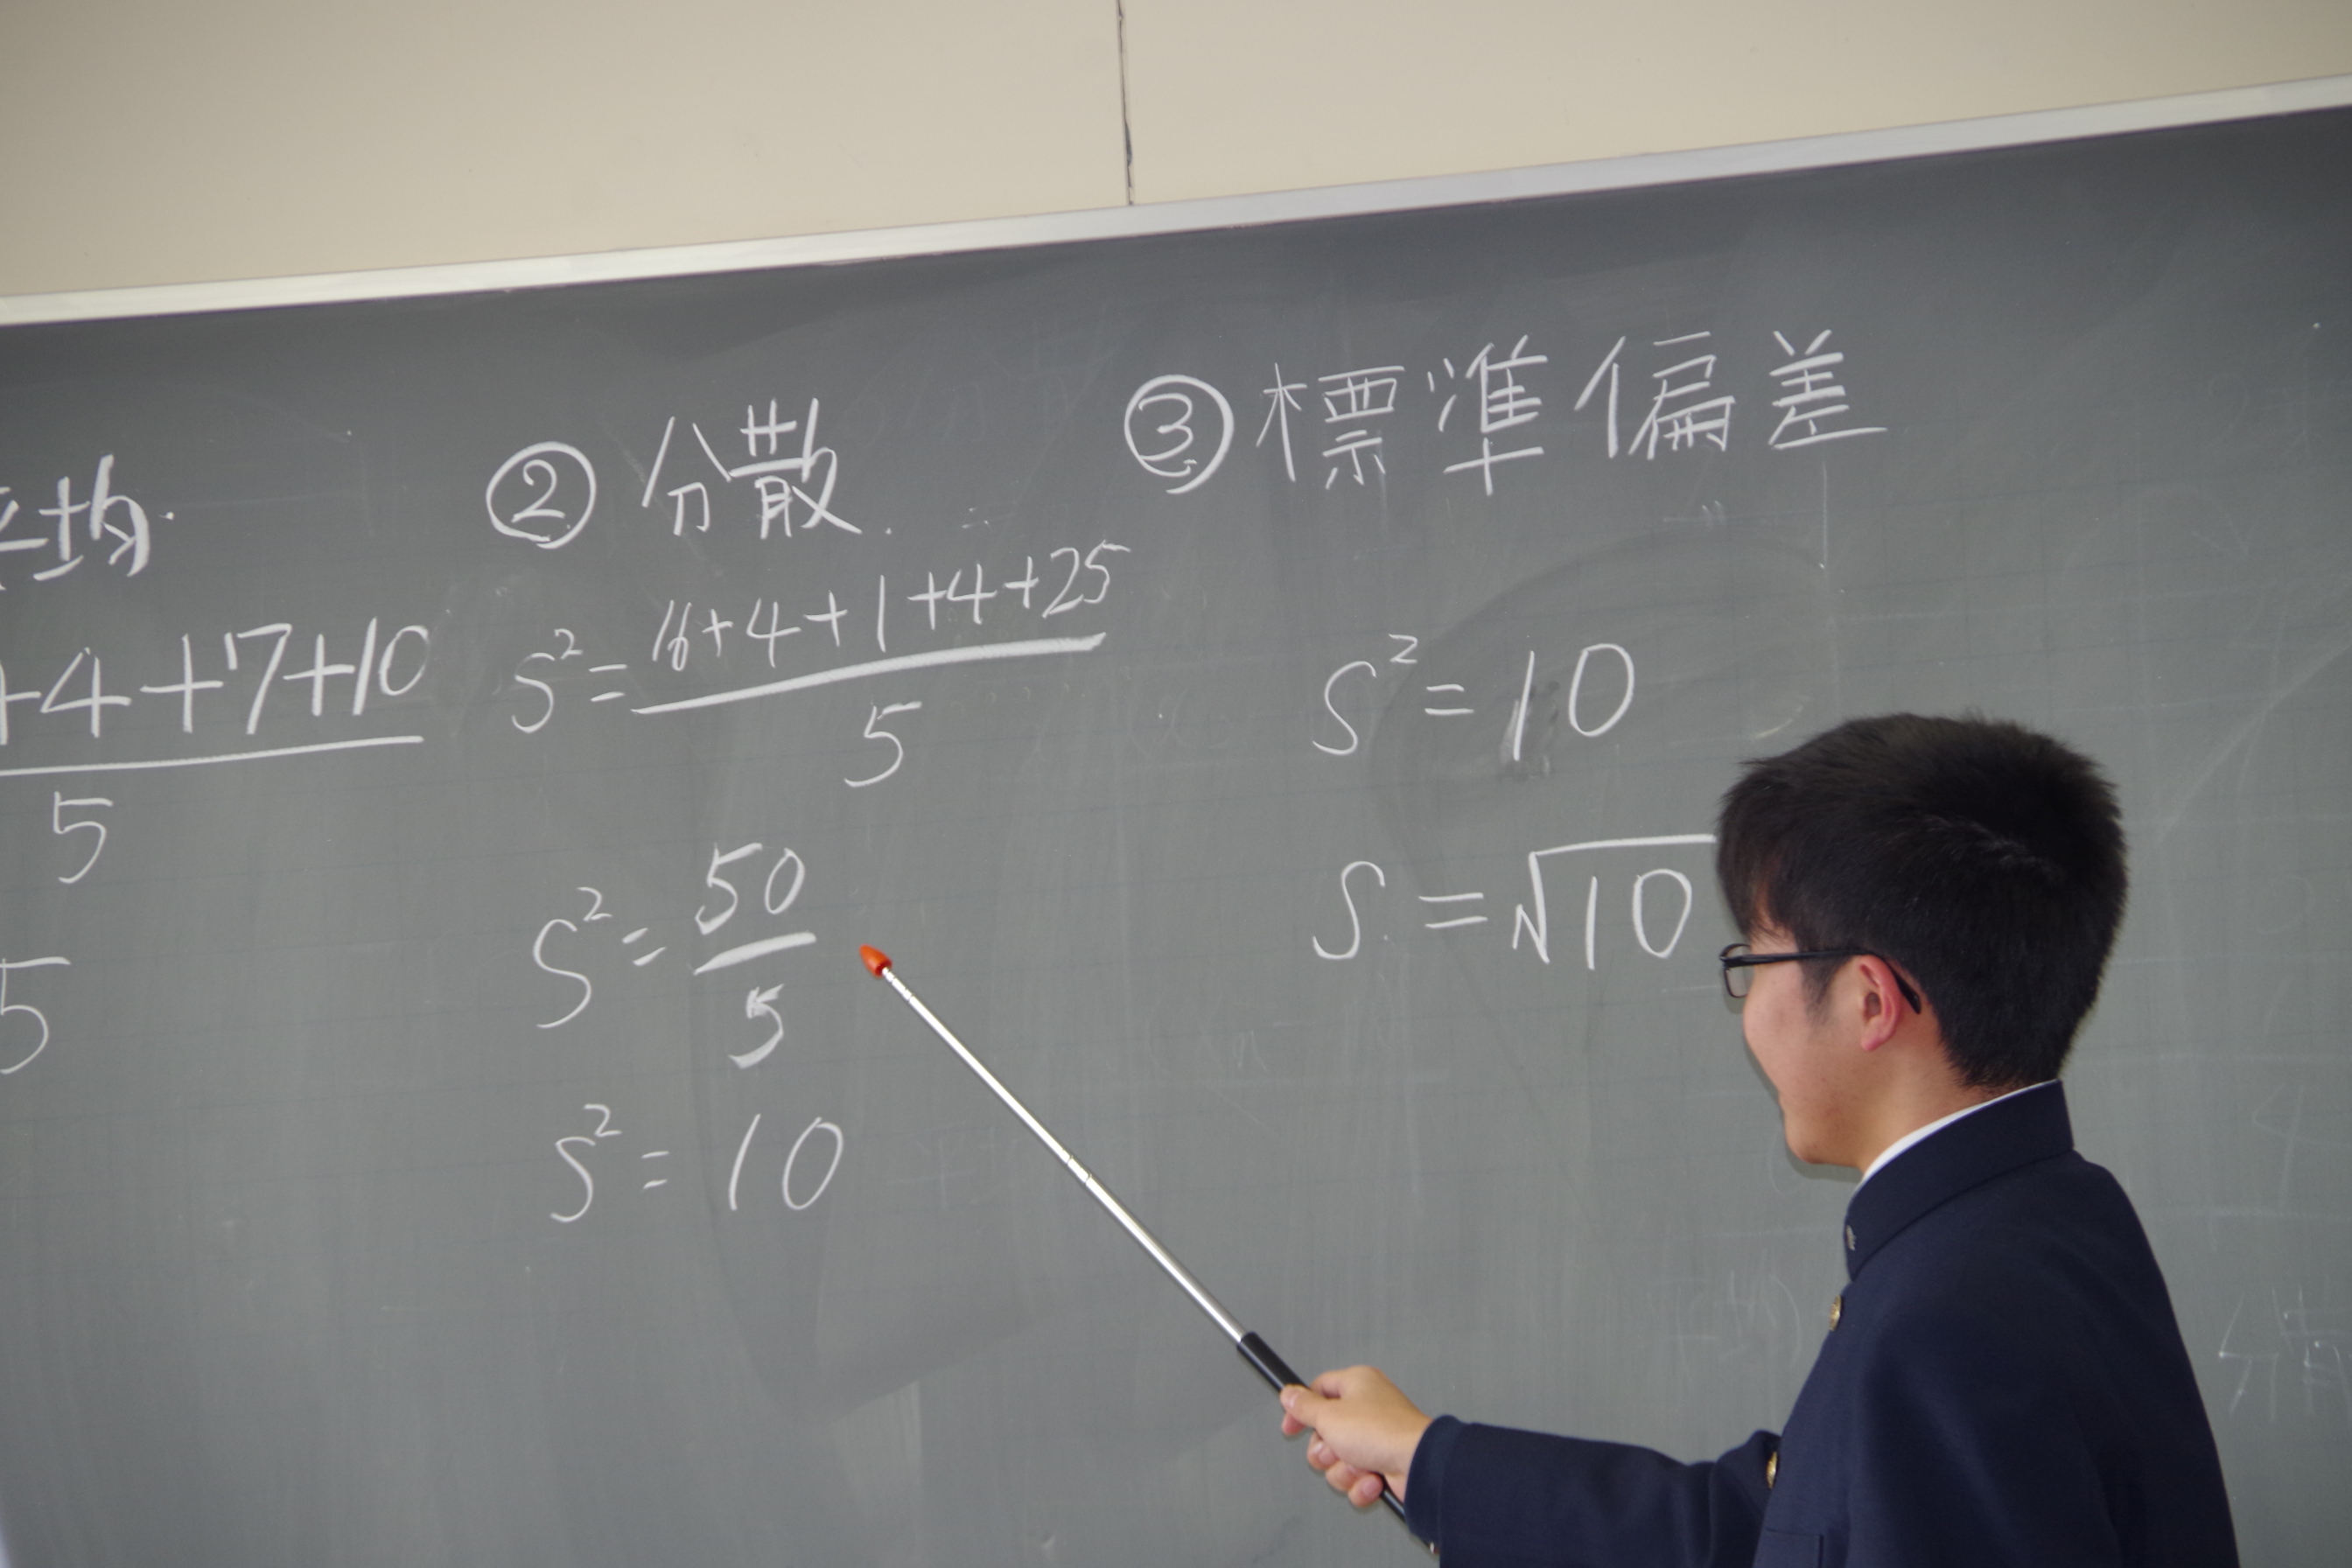 平均
+4+7+10
5
5
② 分散
S²=16+4+1+4+25
5
S²=50
5
S²=10
③ 標準偏差
S²=10
S=√10